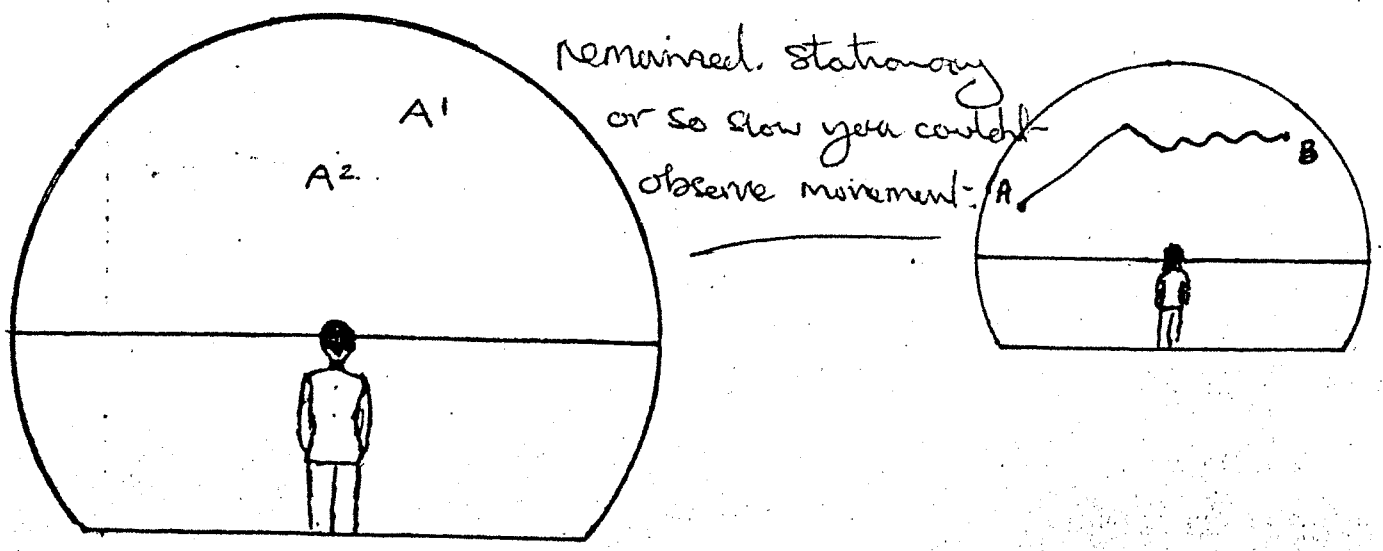 A1
A2.
remained. stationary
or so slow you couldn't
observe movement:
A
B